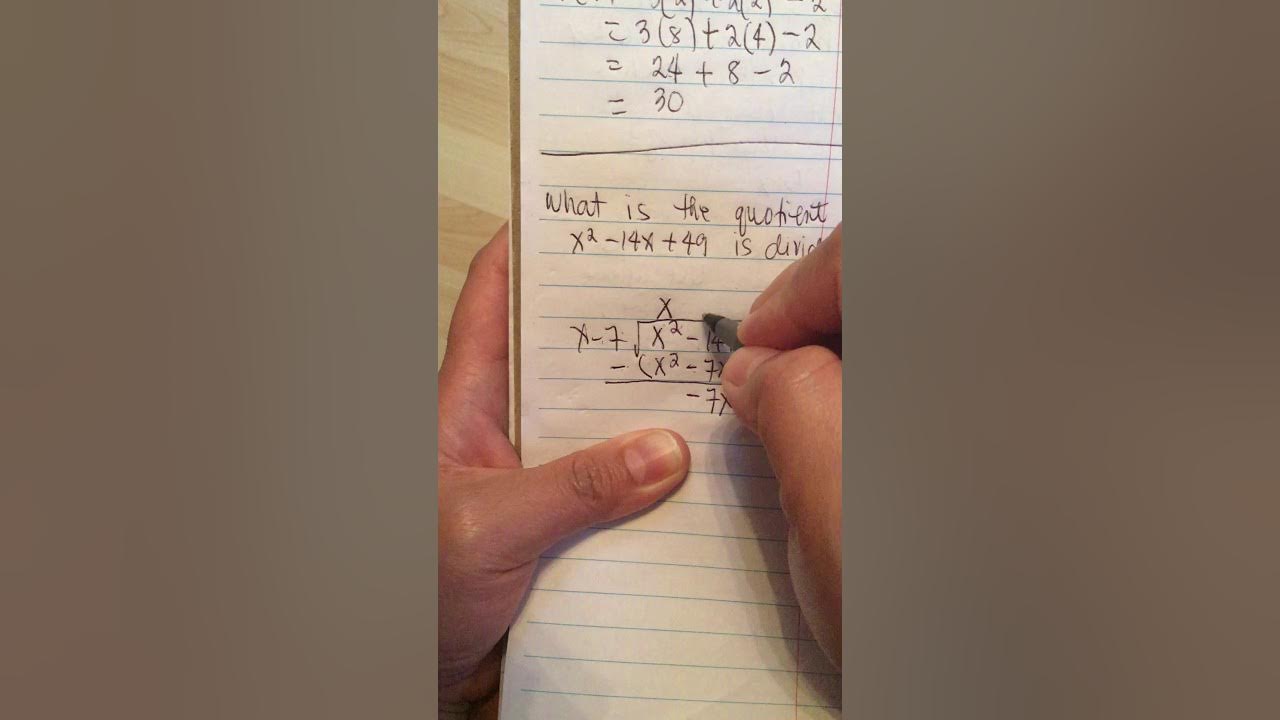 = 3(8) + 2(4) - 2
= 24 + 8 - 2
= 30
What is the quotient
x² - 14x + 49 is
x
x - 7 x² - 14
- (x² - 7x
- 7x